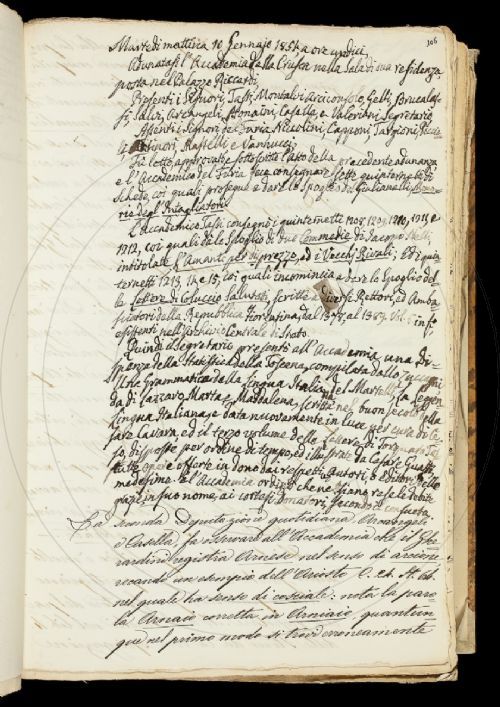 106
Martedì mattina 10 Gennajo 1854, a ore undici,
Adunatasi l'Accademia della Crusca nella Sala di sua residenza
posta nel Palazzo Riccardi.
Presenti i Signori, Tassi, Montalvi Arciconsolo, Gelli, Brucalas-
si, Salvi, Arcangeli, Casella, e Valeriani Segretario,
Assenti i Signori Del Furia, Niccolini, Capponi, Targioni,
Rastelli e Vannucci.
Fu letto, approvato, e sottoscritto l'Atto della precedente adunanza,
e l'Accademico Del Furia fece consegnare sette quinternetti di
Schede, coi quali prosegue a dare lo Spoglio del Giulianelli, Memo-
rie degl'Intagliatori.
L'Accademico Tassi consegnò i quinternetti 1208, 1209, 1210, 1211, e
1212, coi quali dà lo Spoglio di due Commedie di Jacopo Nelli,
intitolate, l'Amante per disprezzo, ed i Vecchj Rivali; ed i quin-
ternetti 1213, 14 e 15, coi quali incomincia a dare lo Spoglio del-
le Lettere di Coluccio Salutati, scritte a diversi Rettori, ed Amba-
sciatori della Repubblica Fiorentina, dal 1378, al 1389.
esistenti nell'Archivio Centrale di Stato.
Quindi il Segretario presentò all'Accademia, una di-
spensa della Statistica della Toscana, compilata dallo Zuccagni
Una grammatica della lingua Italiana del Martelli; la Leggen-
da di Lazzaro, Marta e Maddalena, scritta nel buon secolo della
Lingua Italiana, e data nuovamente in luce per cura di
Cavara, ed il terzo volume delle Lettere di Torquato Tas-
so, disposte per ordine di tempo, ed illustrate da Cesare Guasti,
tutte opere offerte in dono dai rispettivi Autori, o editori delle
medesime. L'Accademia ordinò che ne siano rese le debite
grazie, in suo nome, ai cortesi Donatori, secondo il consueto.
La seconda Deputazione quotidiana, Arcangeli
e Casella, fa osservare all'Accademia che il Ghe-
rardini registra Arnese nel senso di arcione
recando un esempio dell'Ariosto C. St.
nel quale ha senso di cosciale: nota la paro-
la Arnaio corretta in Arniaio, quantun-
que nel primo modo si trovi erroneamente